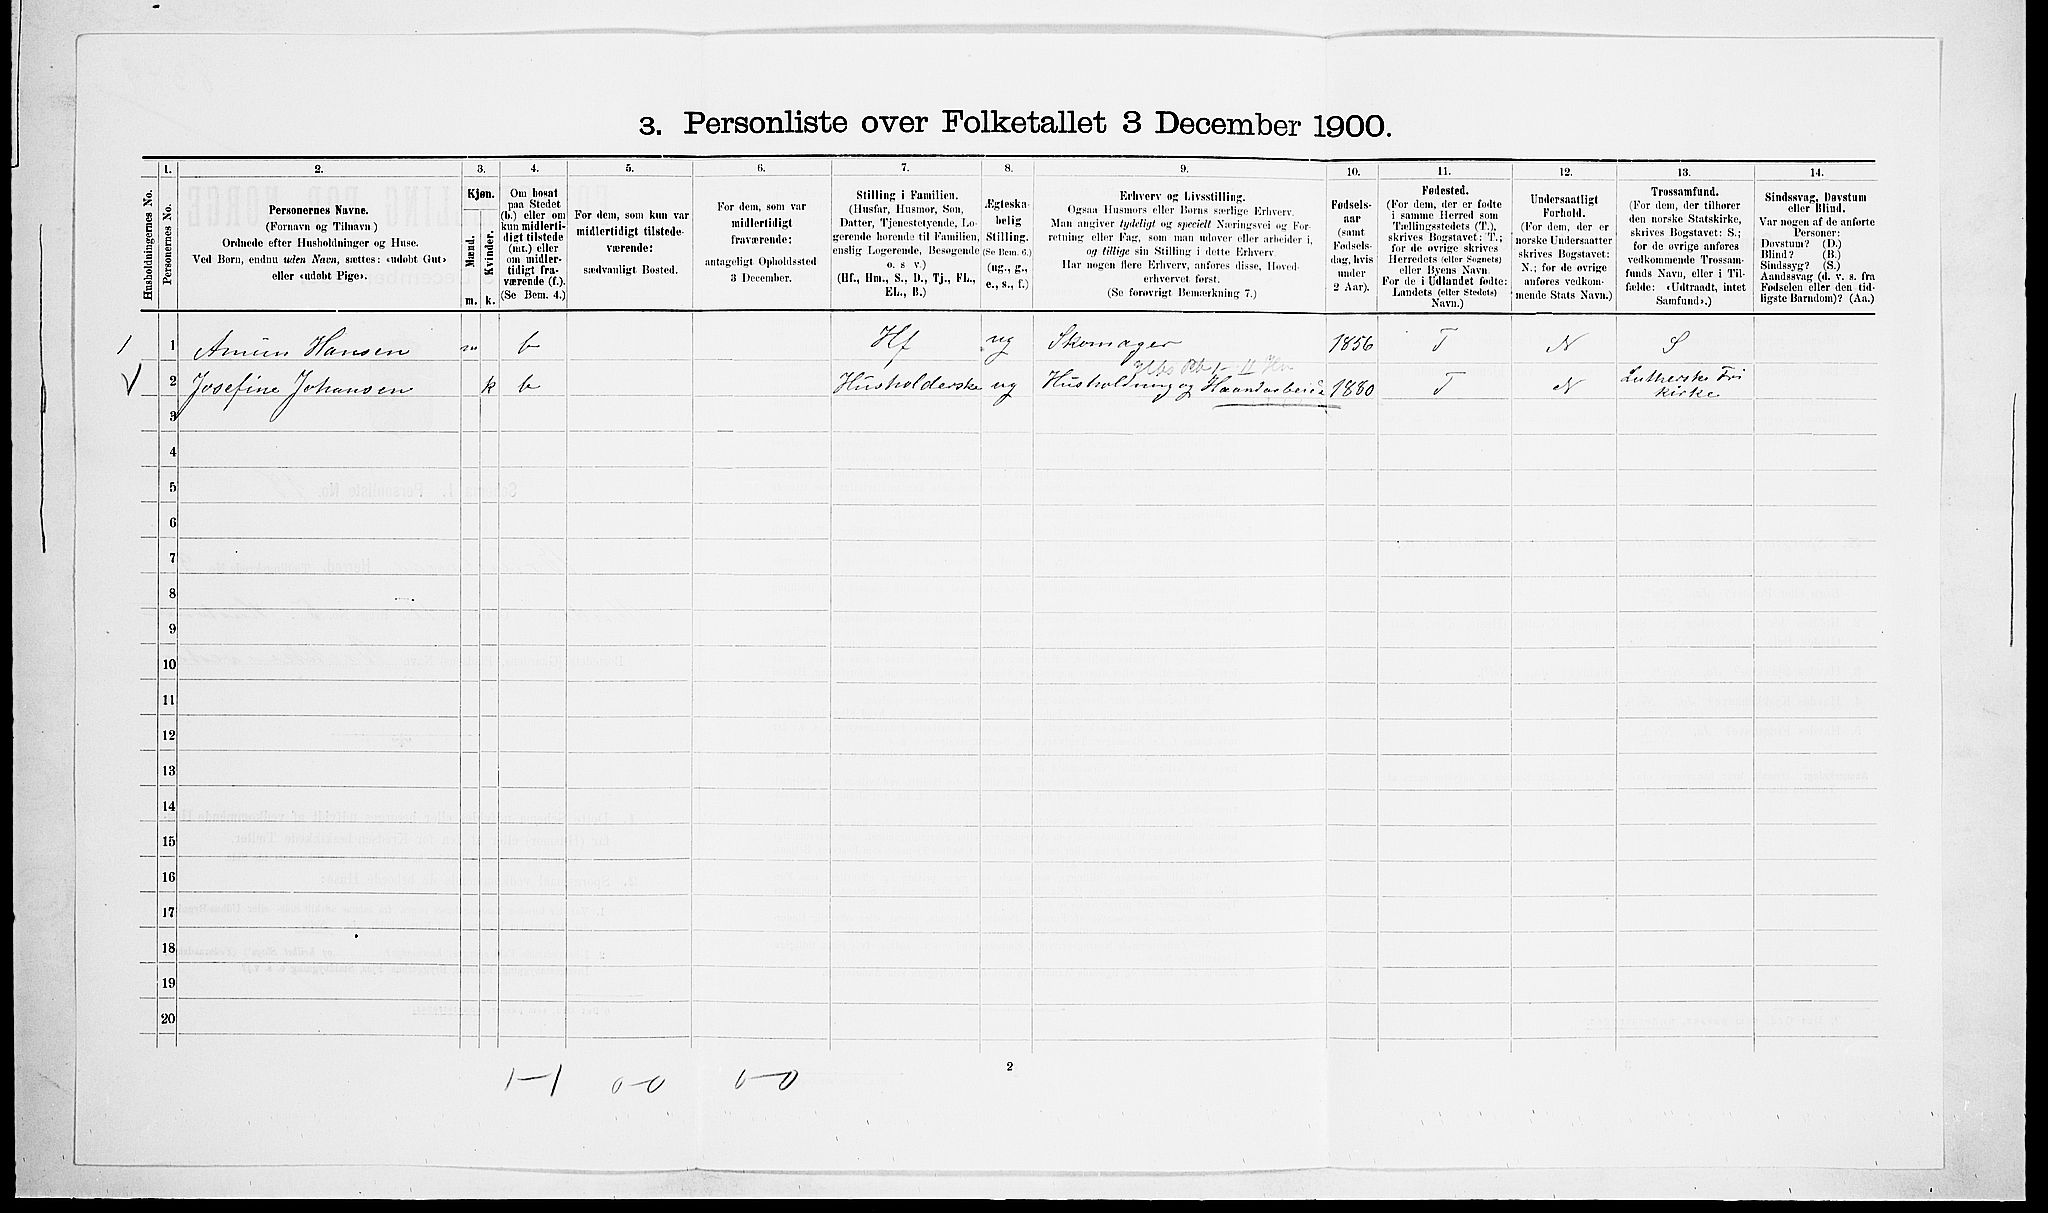 3. Personliste over Folketallet 3 December 1900.
Husholdningernes No.
1.
Personernes No.
2.
Personernes Navne.
(Fornavn og Tilnavn)
Ordnede efter Husholdninger og Huse.
Ved Børn, endnu uden Navn, sættes: «udøbt Gut»
eller «udøbt Pige».
3.
Kjøn.
Mænd.
Kvinder.
m.
k.
4.
Om bosat
paa Stedet
(b.) eller om
kun midlerti-
digt tilstede
(mt.) eller
om midler-
tidigt fra-
værende (f.).
(Se Bem. 4.)
5.
For dem, som kun var
midlertidigt tilstede-
værende:
sædvanligt Bosted.
6.
For dem, som var
midlertidigt
fraværende:
antageligt Opholdssted
3 December.
7.
Stilling i Familien.
(Husfar, Husmor, Søn,
Datter, Tjenestetyende, Lo-
gerende hørende til Familien,
enslig Logerende, Besøgende
o. s v.)
(Hf., Hm., S., D., Tj., FL.,
EL., B.)
8.
Ægteska-
belig
Stilling.
(Se Bem. 6.)
(ug., g.,
e., s., f.)
9.
Erhverv og Livsstilling.
Ogsaa Husmors eller Børns særlige Erhverv.
Man angiver tydeligt og specielt Næringsvei og For-
retning eller Fag, som man udøver eller arbeider i,
og tillige sin Stilling i dette Erhverv.
Har nogen flere Erhverv, anføres disse, Hoved-
erhvervet først.
(Se forøvrigt Bemærkning 7.)
10.
Fødsels-
aar
(samt
Fødsels-
dag, hvis
under
2 Aar).
11.
Fødested.
(For dem, der er fødte
i samme Herred som
Tællingsstedets (T.),
skrives Bogstavet: T.;
for de øvrige skrives
Herredets (eller Sognets)
eller Byens Navn.
For de i Udlandet fødte:
Landets (eller Stedets)
Navn.)
12.
Undersaatligt
Forhold.
(For dem, der er
norske Undersaatter
skrives Bogstavet:
N.; for de øvrige
anføres vedkom-
mende Stats Navn.)
13.
Trossamfund.
(For dem, der tilhører
den norske Statskirke,
skrives Bogstavet: S.;
for de øvrige anføres
vedkommende Trossam-
funds Navn, eller i Til-
fælde: «Udtraadt, intet
Samfund».)
14.
Sindssvag, Døvstum
eller Blind.
Var nogen af de anførte
Personer:
Døvstum? (D.)
Blind? (B.)
Sindssyg? (S.)
Aandssvag (d. v. s. fra
Fødselen eller den tid-
ligste Barndom)? (Aa.)
1 1 Hansen m b Hf ug Skomager 1856 T N S
2 Josefine Johansen k b Husholderske ug Husholdning og Haandarbeide 1880 T N Lutherske Fri
kirke
3
4
5
6
7
8
9
10
11
12
13
14
15
16
17
18
19
20
1-1 0-0 0-0
2